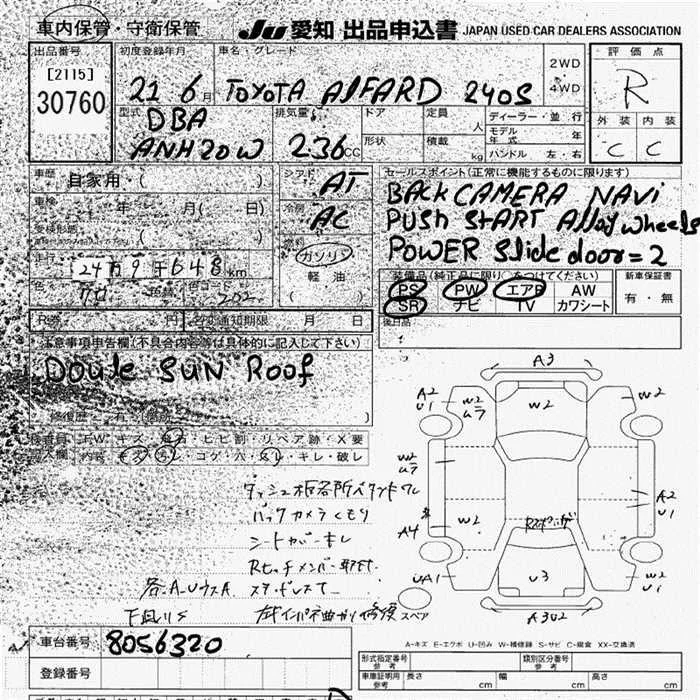 車内保管・守衛保管 JU 愛知 出品申込書 JAPAN USED CAR DEALERS ASSOCIATION
出品番号 初度登録年月 車名・グレード 2WD 4WD 評価点
[2115]
30760 21 6月 TOYOTA AlFARD 240S R
型式 DBA 排気量 ドア 定員 人 ディーラー・並行 外装 内装
モデル年式 年
ANH20W 236cc 形状 積載 kg ハンドル 左・右 C C
車歴 自家用( ) シフト AT セールスポイント(正常に機能するものに限ります)
車検 年 月( 日) 冷房 AC BACK CAMERA NAVi
PUSH StART Alloy wheels
燃料 ガソリン POWER Slide door=2
走行 124万9千648km 軽・油
装備品(純正品に限り○をつけてください) 新車保証書
色 カラーコード 202 PS PW エアB AW 有・無
SR ナビ TV カワシート
R券 円 名変通知期限 月 日 後日品
注意事項申告欄(不具合内容等は具体的に記入して下さい)
Doule SUN Roof
修復歴 有
A3
A2 U1 W2 W2 W2
W2
A4 W2 A2 U1
UA1 U3 W2 U1
A3U2
キズ ヒビ割・リペア跡・X要
内装 コゲ・穴 キレ・破レ
バックカメラくもり
シートカバーキレ
下廻りS スペア
A-キズ E-エクボ U-凹み W-補修跡 S-サビ C-腐食 XX-交換済
車台番号 8056320
形式指定番号 参考 類別区分番号 参考
登録番号 車庫証明用 参考 長さ cm 幅 cm 高さ cm